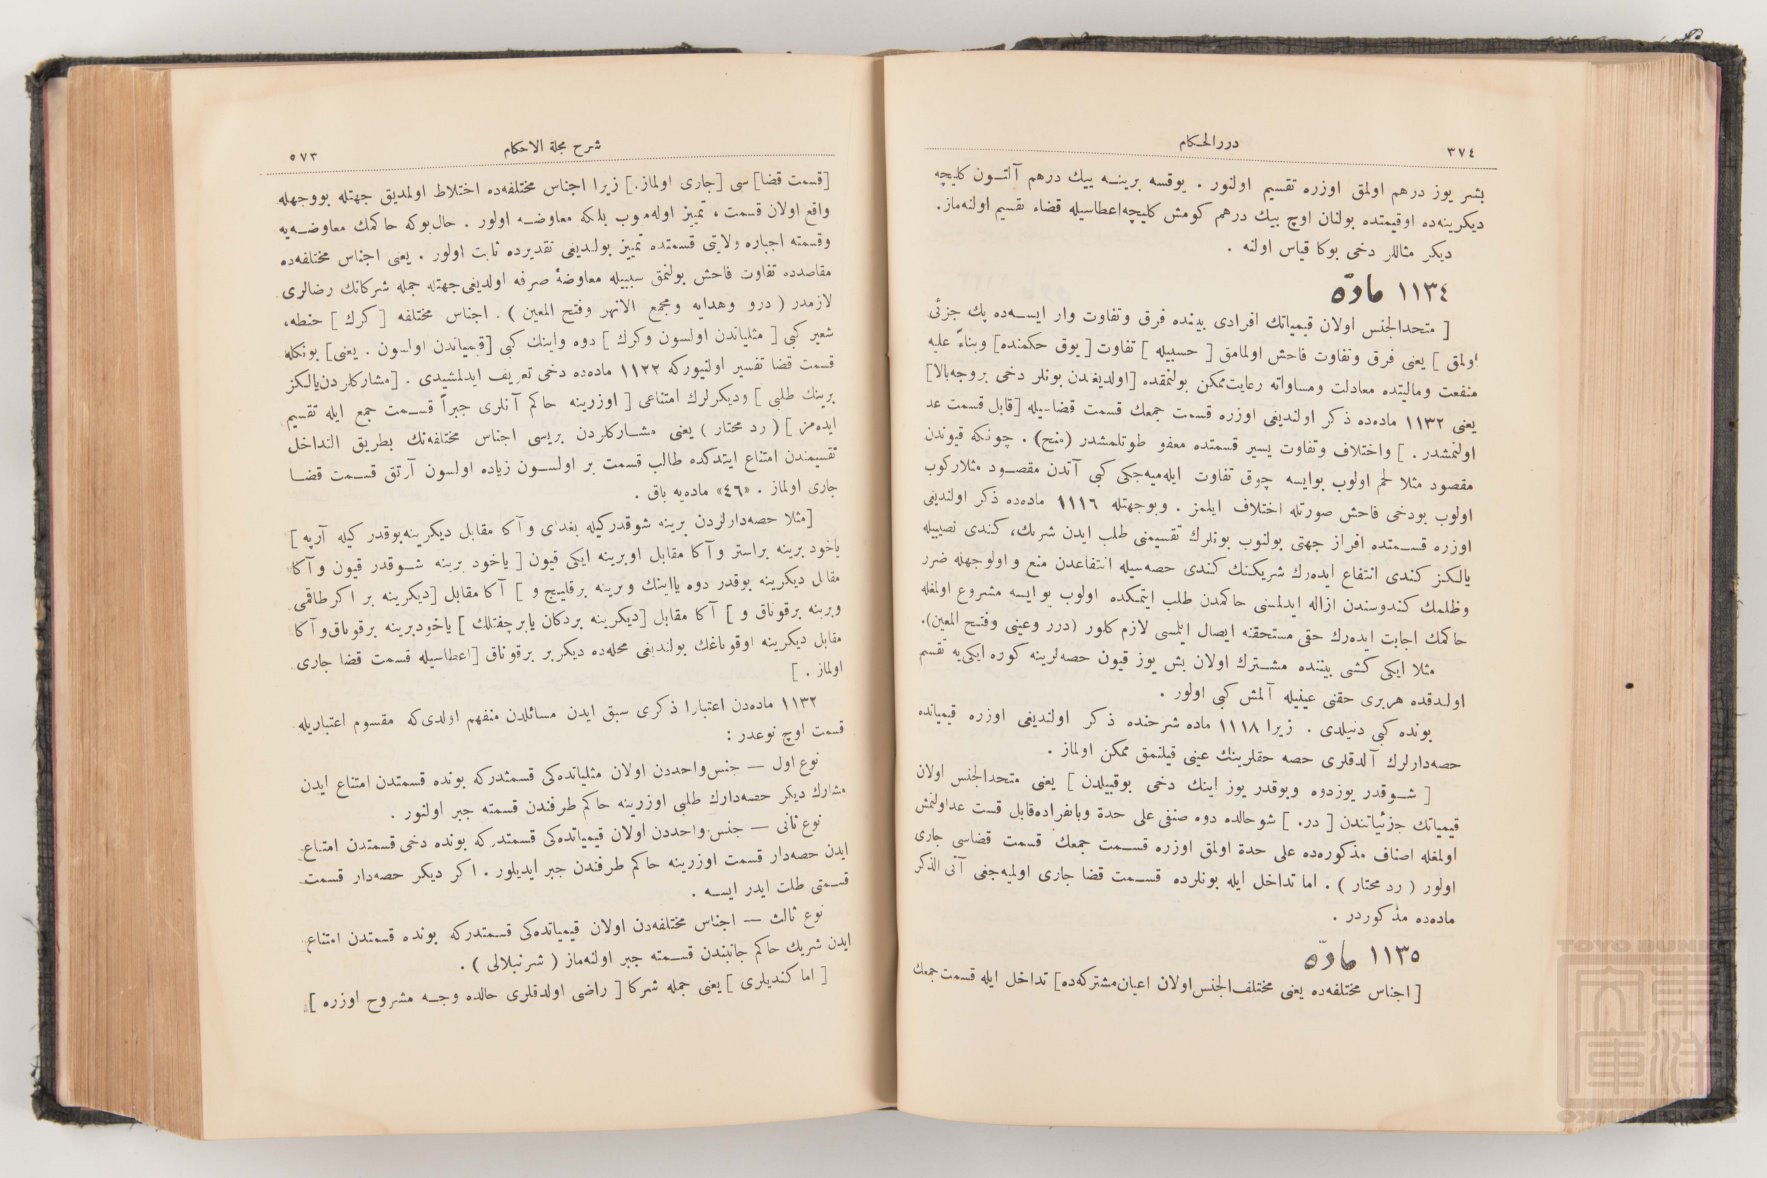 ٣٧٤
دررالحكام
بشر يوز درهم اولمق اوزره تقسيم اولنور . يوقسه برينــه بيك درهم آلتــون كليچه
ديكرينه‌ده اوقيمتده بولنان اوچ بيك درهم كومش كليچه‌اعطاسيله قضاء تقسيم اولنه‌ماز.
ديكر مثاللر دخى بوكا قياس اولنه .
١١٣٤ مادّه
[ متحدالجنس اولان قيمياتك افرادى بيننده فرق وتفاوت وار ايســه‌ده پك جزئى
اولمق ] يعنى فرق وتفاوت فاحش اولمامق [ حسبيله ] تفاوت [ يوق حكمنده] وبناءً عليه
منفعت وماليتده معادلت ومساواته رعايت‌ممكن بولنمقده [اولديغندن بونلر دخى بروجه‌بالا]
يعنى ١١٣٢ ماده‌ده ذكر اولنديغى اوزره قسمت جمعك قسمت قضاسيله [قابل قسمت عد
اولنمشدر . ] واختلاف وتفاوت يسير قسمتده معفو طوتلمشدر (منح) . چونكه قيوندن
مقصود مثلا لحم اولوب بوايسه چوق تفاوت ايله‌ميه‌جكى كبى آتدن مقصــود مثلاركوب
اولوب بودخى فاحش صورتله اختلاف ايلمز . وبوجهتله ١١١٦ ماده‌ده ذكر اولنديغى
اوزره قســمتده افراز جهتى بولنوب بونلرك تقسيمنى طلب ايدن شريك، كندى نصيبيله
يالكز كندى انتفاع ايده‌رك شريكنك كندى حصه‌سيله انتفاعدن منع واولوجهله ضرر
وظلمك كندوسندن ازاله ايدلمسنى حاكمدن طلب ايتمكده اولوب بوايسه مشروع اولمغله
حاكمك اجابت ايده‌رك حقى مستحقنه ايصال ايلمسى لازم كلور (درر وعينى وفتح المعين).
مثلا ايكى كشى بيننده مشــترك اولان بش يوز قيون حصه‌لرينه كوره ايكى‌يه تقسم
اولدقده هربرى حقنى عينيله آلمش كبى اولور .
بونده كبى دنيلدى . زيرا ١١١٨ ماده شرحنده ذكر اولنديغى اوزره قيمياتده
حصه‌دارلرك آلدقلرى حصه حقلرينك عينى قيلنمق ممكن اولماز .
[ شــوقدر يوزدوه وبوقدر يوز اينك دخى بوقبيلدن ] يعنى متحدالجنس اولان
قيمياتك جزئياتندن [ در. ] شوحالده دوه صنفى على حدة وبانفراده‌قابل قست عداولنمش
اولمغله اصناف مذكوره‌ده على حدة اولمق اوزره قســمت جمعك قسمت قضاسى جارى
اولور ( رد محتار ) . اما تداخل ايله بونلرده قســمت قضا جارى اولميه‌جغى آتى الذكر
ماده‌ده مذكوردر .
١١٣٥ مادّه
[ اجناس مختلفه‌ده يعنى مختلف‌الجنس‌اولان اعيان‌مشتركه‌ده] تداخل ايله قسمت جمعك
شرح مجلة الاحكام
٥٧٣
[قسمت قضا] سى [جارى اولماز.] زيرا اجناس مختلفه‌ده اختلاط اولمديق جهتله بووجهله
واقع اولان قسمت ، تمييز اوله‌ميوب بلكه معاوضــه اولور . حال‌بوكه حاكمك معاوضــه‌يه
وقسمته اجباره ولايتى قسمتده تمييز بولنديغى تقديرده ثابت اولور . يعنى اجناس مختلفه‌ده
مقاصدده تفاوت فاحش بولنمق سببيله معاوضهٔ صرفه اولديغى‌جهتله جمله شركانك رضالرى
لازمدر ( درو وهدايه ومجمع الانهر وفتح المعين ) . اجناس مختلفه [ كرك ] حنطه،
شعير كبى [ مثلياتدن اولسون وكرك ] دوه واينك كبى [قيمياتدن اولسون . يعنى] بونكله
قسمت قضا تفسير اولنيوركه ١١٢٢ ماده‌ده دخى تعريف ايدلمشيدى . [مشاركلردن‌يالكز
برينك طلبى ] وديكرلرك امتناعى [ اوزرينه حاكم آنلرى جبراً قســمت جمع ايله تقسيم
ايده‌من ] ( رد محتار ) يعنى مشــاركلردن بريسى اجناس مختلفه‌نك بطريق التداخل
تقسيمندن امتناع ايتدكده طالب قسمت بر اولســون زياده اولسون آرتق قســمت قضــا
جارى اولماز . «٤٦» ماده‌يه باق .
[مثلا حصه‌دارلردن برينه شوقدركيله بغداى وآكا مقابل ديكرينه‌بوقدر كيله آرپه ]
ياخود برينه براستر وآكا مقابل اوبرينه ايكى قيون [ ياخود برينه شــوقدر قيون وآكا
مقابل ديكرينه بوقدر دوه يااينك وبرينه برقليچ و ] آكا مقابل [ديكرينه بر اكرطاقمى
وبرينه برقوناق و ] آكا مقابل [ديكرينه بردكان يابرچفتلك ] ياخودبرينه برقوناق‌وآكا
مقابل ديكرينه اوقوناغك بولنديغى محله‌ده ديكربر برقوناق [اعطاسيله قسمت قضا جارى
اولماز . ]
١١٣٢ ماده‌دن اعتبارا ذكرى سبق ايدن مسائلدن منفهم اولدى‌كه مقسوم اعتباريله
قسمت اوچ نوعدر :
نوع اول — جنس‌واحددن اولان مثلياتده‌كى قسمتدركه بونده قسمتدن امتناع ايدن
مشارك ديكر حصه‌دارك طلبى اوزرينه حاكم طرفندن قسمته جبر اولنور .
نوع ثانى — جنس‌واحددن اولان قيمياتده‌كى قسمتدركه بونده دخى قسمتدن امتناع
ايدن حصه‌دار قسمت اوزرينه حاكم طرفندن جبر ايديلور . اكر ديكر حصه‌دار قسمت
قسمتى طلت ايدر ايســه .
نوع ثالث — اجناس مختلفه‌دن اولان قيمياتده‌كى قســمتدركه بونده قسمتدن امتناع
ايدن شريك حاكم جانبندن قســمته جبر اولنه‌ماز ( شرنبلالى ) .
[ اما كنديلرى ] يعنى جمله شركا [ راضى اولدقلرى حالده وجــه مشروح اوزره ]
TOYO BUNKO